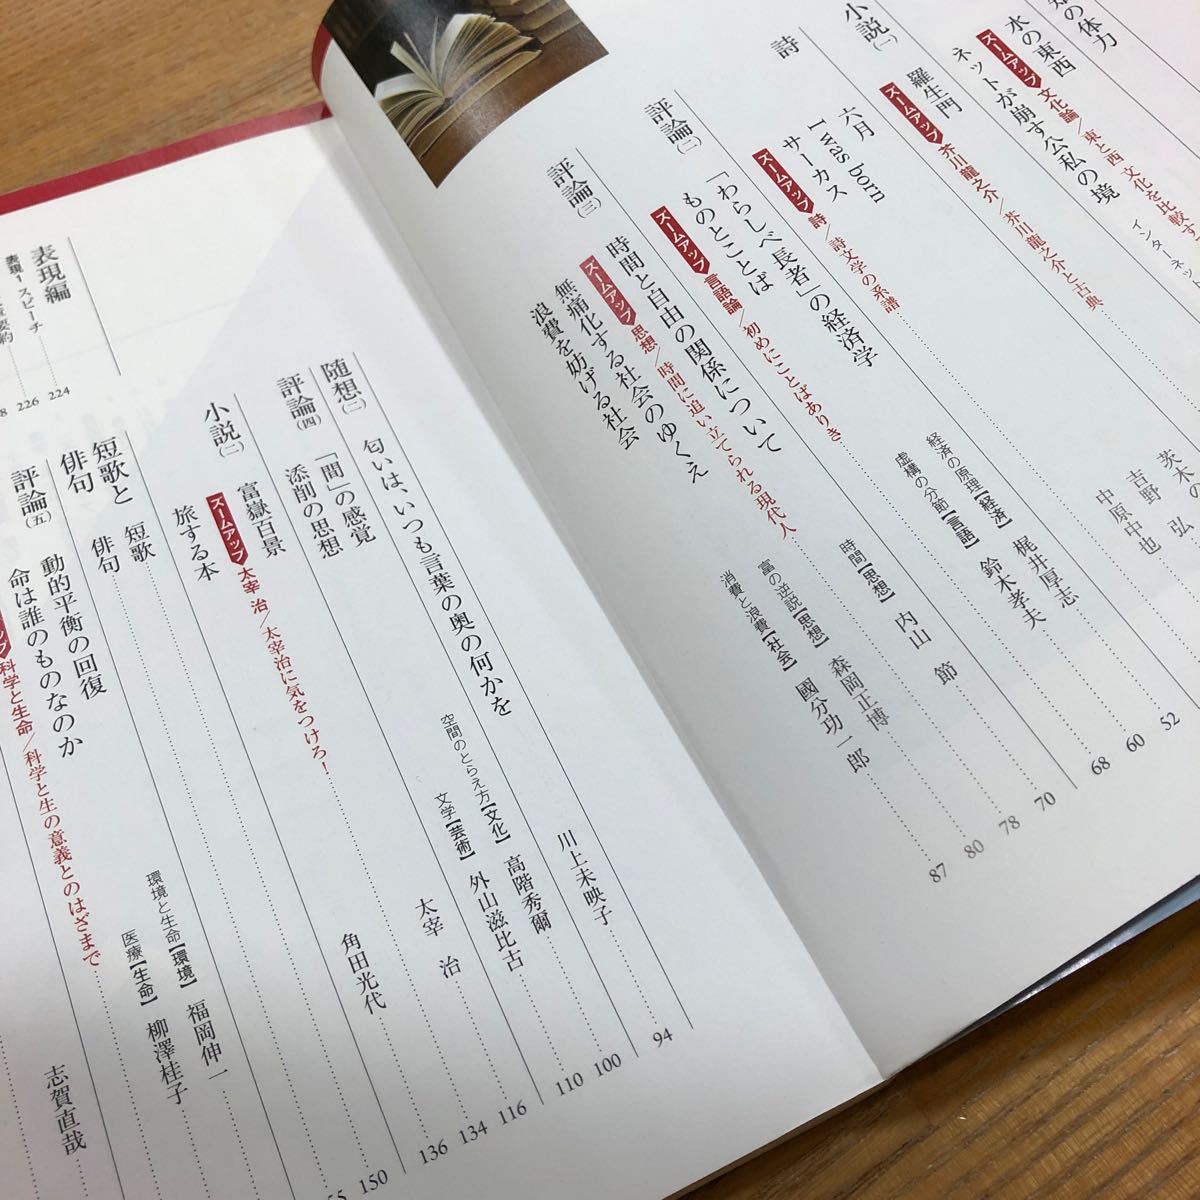 知の体力
水の東西
ズームアップ 文化論/東と西 文化を比較す
ネットが崩す公私の境
インターネッ
小説(一)
羅生門
ズームアップ 芥川龍之介/芥川龍之介と古典
詩
六月
茨木の
I was born
吉野 弘
サーカス
中原中也
ズームアップ 詩/詩文学の系譜
評論(二)
「わらしべ長者」の経済学
経済の原理【経済】 梶井厚志
ものとことば
虚構の分節【言語】 鈴木孝夫
ズームアップ 言語論/初めにことばありき
評論(三)
時間と自由の関係について
時間【思想】 内山 節
ズームアップ 思想/時間に追い立てられる現代人
無痛化する社会のゆくえ
富の逆説【思想】 森岡正博
浪費を妨げる社会
消費と浪費【社会】 國分功一郎
52
60
68
70
78
80
87
随想(二)
匂いは、いつも言葉の奥の何かを
川上未映子
94
評論(四)
「間」の感覚
空間のとらえ方【文化】 高階秀爾
100
添削の思想
文学【芸術】 外山滋比古
110
小説(二)
富嶽百景
太宰 治
116
ズームアップ 太宰 治/太宰治に気をつけろ!
134
旅する本
角田光代
136
短歌と俳句
短歌
150
俳句
55
評論(五)
動的平衡の回復
環境と生命【環境】 福岡伸一
命は誰のものなのか
医療【生命】 柳澤桂子
科学と生命/科学と生の意義とのはざまで
志賀直哉
表現編
表現1 スピーチ
224
要約
226
8